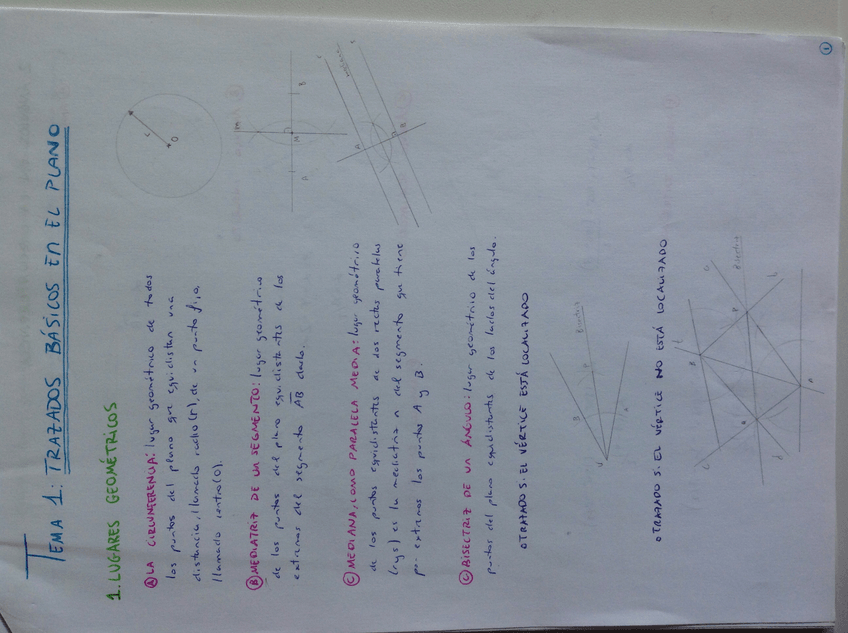 TEMA 1: TRAZADOS BÁSICOS EN EL PLANO
1. LUGARES GEOMÉTRICOS
Ⓐ LA CIRCUNFERENCIA: lugar geométrico de todos
los puntos del plano que equidistan una
distancia, llamado radio (r), de un punto fijo,
llamado centro (O).
Ⓑ MEDIATRIZ DE UN SEGMENTO: lugar geométrico
de los puntos del plano equidistantes de los
extremos del segmento AB dado.
Ⓒ MEDIANA, COMO PARALELA MEDIA: lugar geométrico
de los puntos equidistantes de dos rectas paralelas
(r y s) es la mediatriz n del segmento que tiene
por extremos los puntos A y B.
Ⓒ BISECTRIZ DE UN ÁNGULO: lugar geométrico de los
puntos del plano equidistantes de los lados del ángulo.
O TRAZADO S. EL VÉRTICE ESTÁ LOCALIZADO
O TRAZADO S. EL VÉRTICE NO ESTÁ LOCALIZADO
r
O
m
A
M
B
r
s
A
B
V
A
B
P
Bisectriz
r
B
P
A
Bisectriz
1